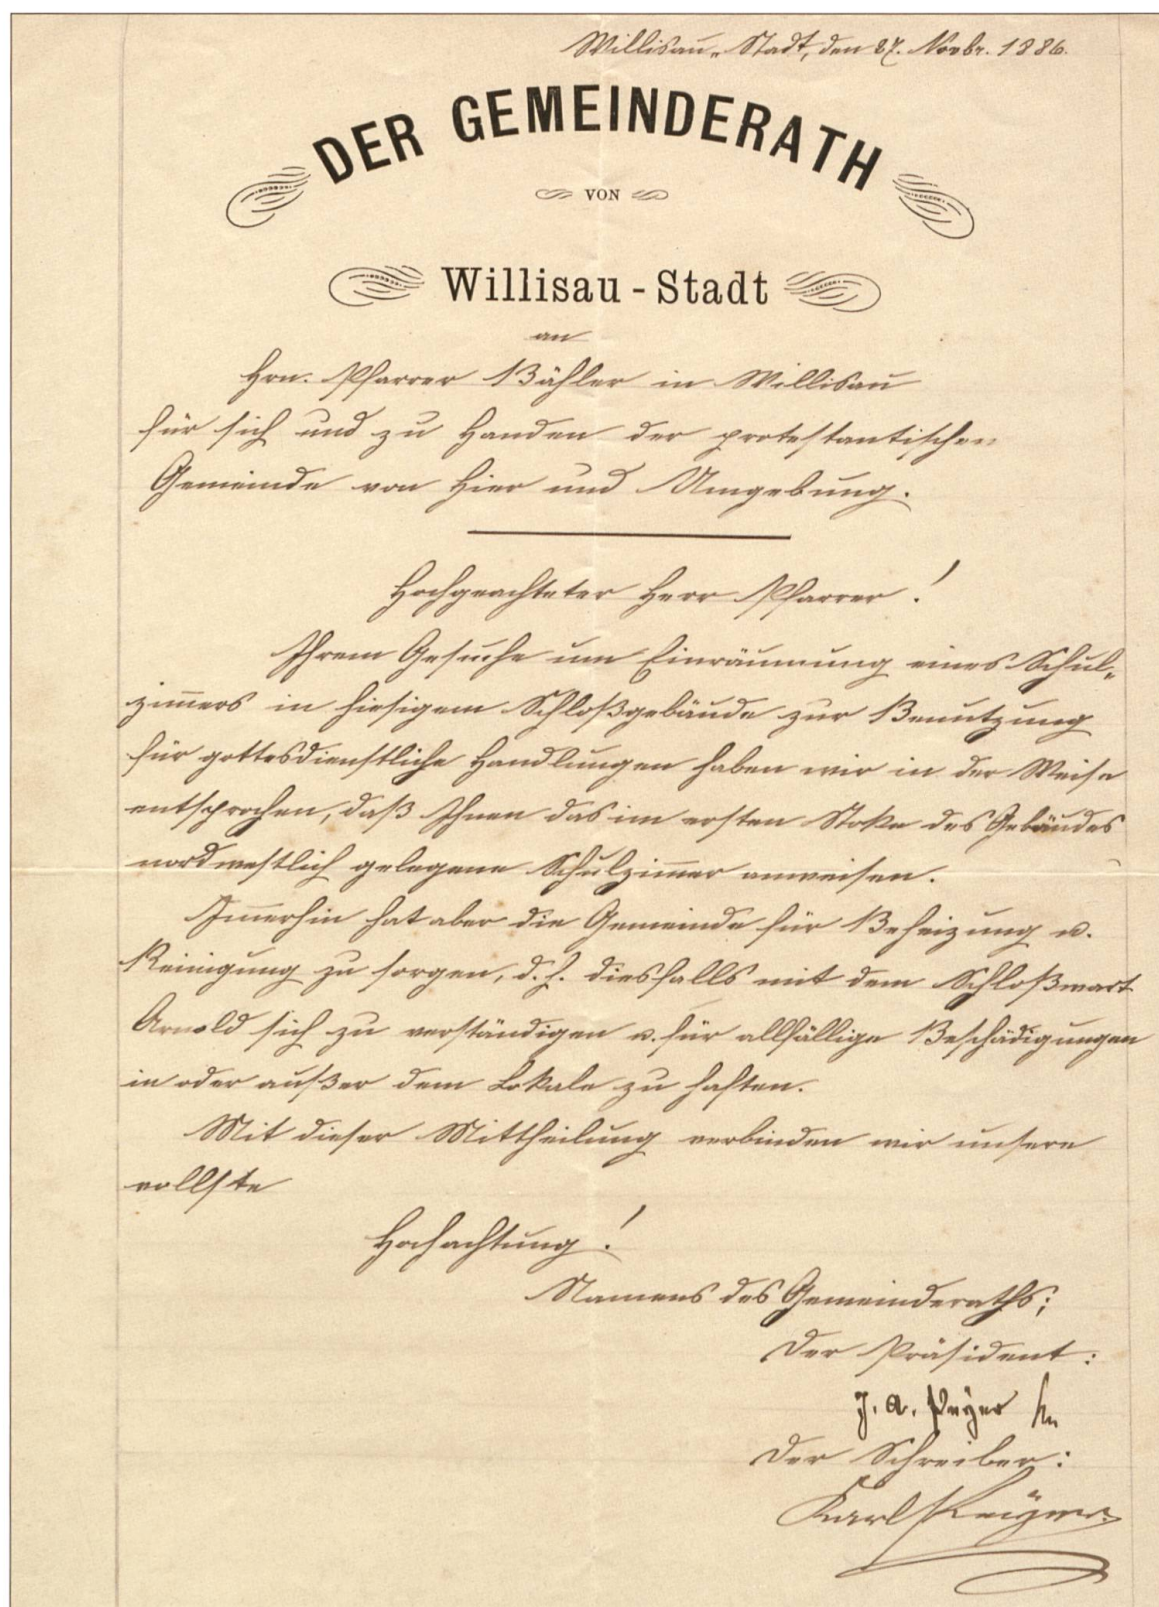 Willisau-Stadt, den 27. Novbr. 1886.
DER GEMEINDERATH
VON
Willisau-Stadt
an
Hrn. Pfarrer Bähler in Willisau
für sich und zu Handen der protestantischen
Gemeinde von hier und Umgebung.
Hochgeachteter Herr Pfarrer!
Ihrem Gesuche um Einräumung eines Schul-
zim̅ers in hiesigem Schloßgebäude zur Benutzung
für gottesdienstliche Handlungen haben wir in der Weise
entsprochen, daß Ihnen das im ersten Stoke des Gebäudes
nordwestlich gelegene Schulzim̅er anweisen.
Im̅erhin hat aber die Gemeinde für Beheizung u.
Reinigung zu sorgen, d. h. diesfalls mit dem Schloßwart
Arnold sich zu verständigen u. für allfällige Beschädigungen
in oder außer dem Lokale zu haften.
Mit dieser Mittheilung verbinden wir unsere
vollste
Hochachtung!
Namens des Gemeinderaths;
Der Präsident:
J. A. Peÿer
Der Schreiber:
Karl